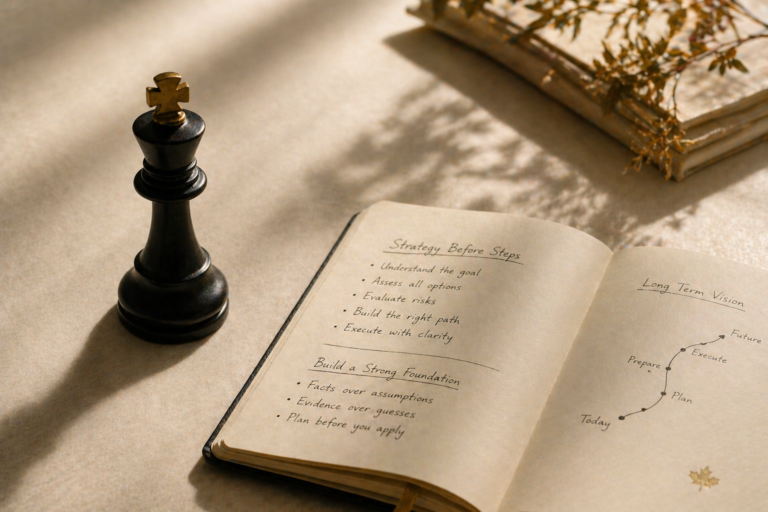 Strategy Before Steps
• Understand the goal
• Assess all options
• Evaluate risks
• Build the right path
• Execute with clarity
Build a Strong Foundation
• Facts over assumptions
• Evidence over guesses
• Plan before you apply
Long Term Vision
Future
Execute
Prepare
Plan
Today